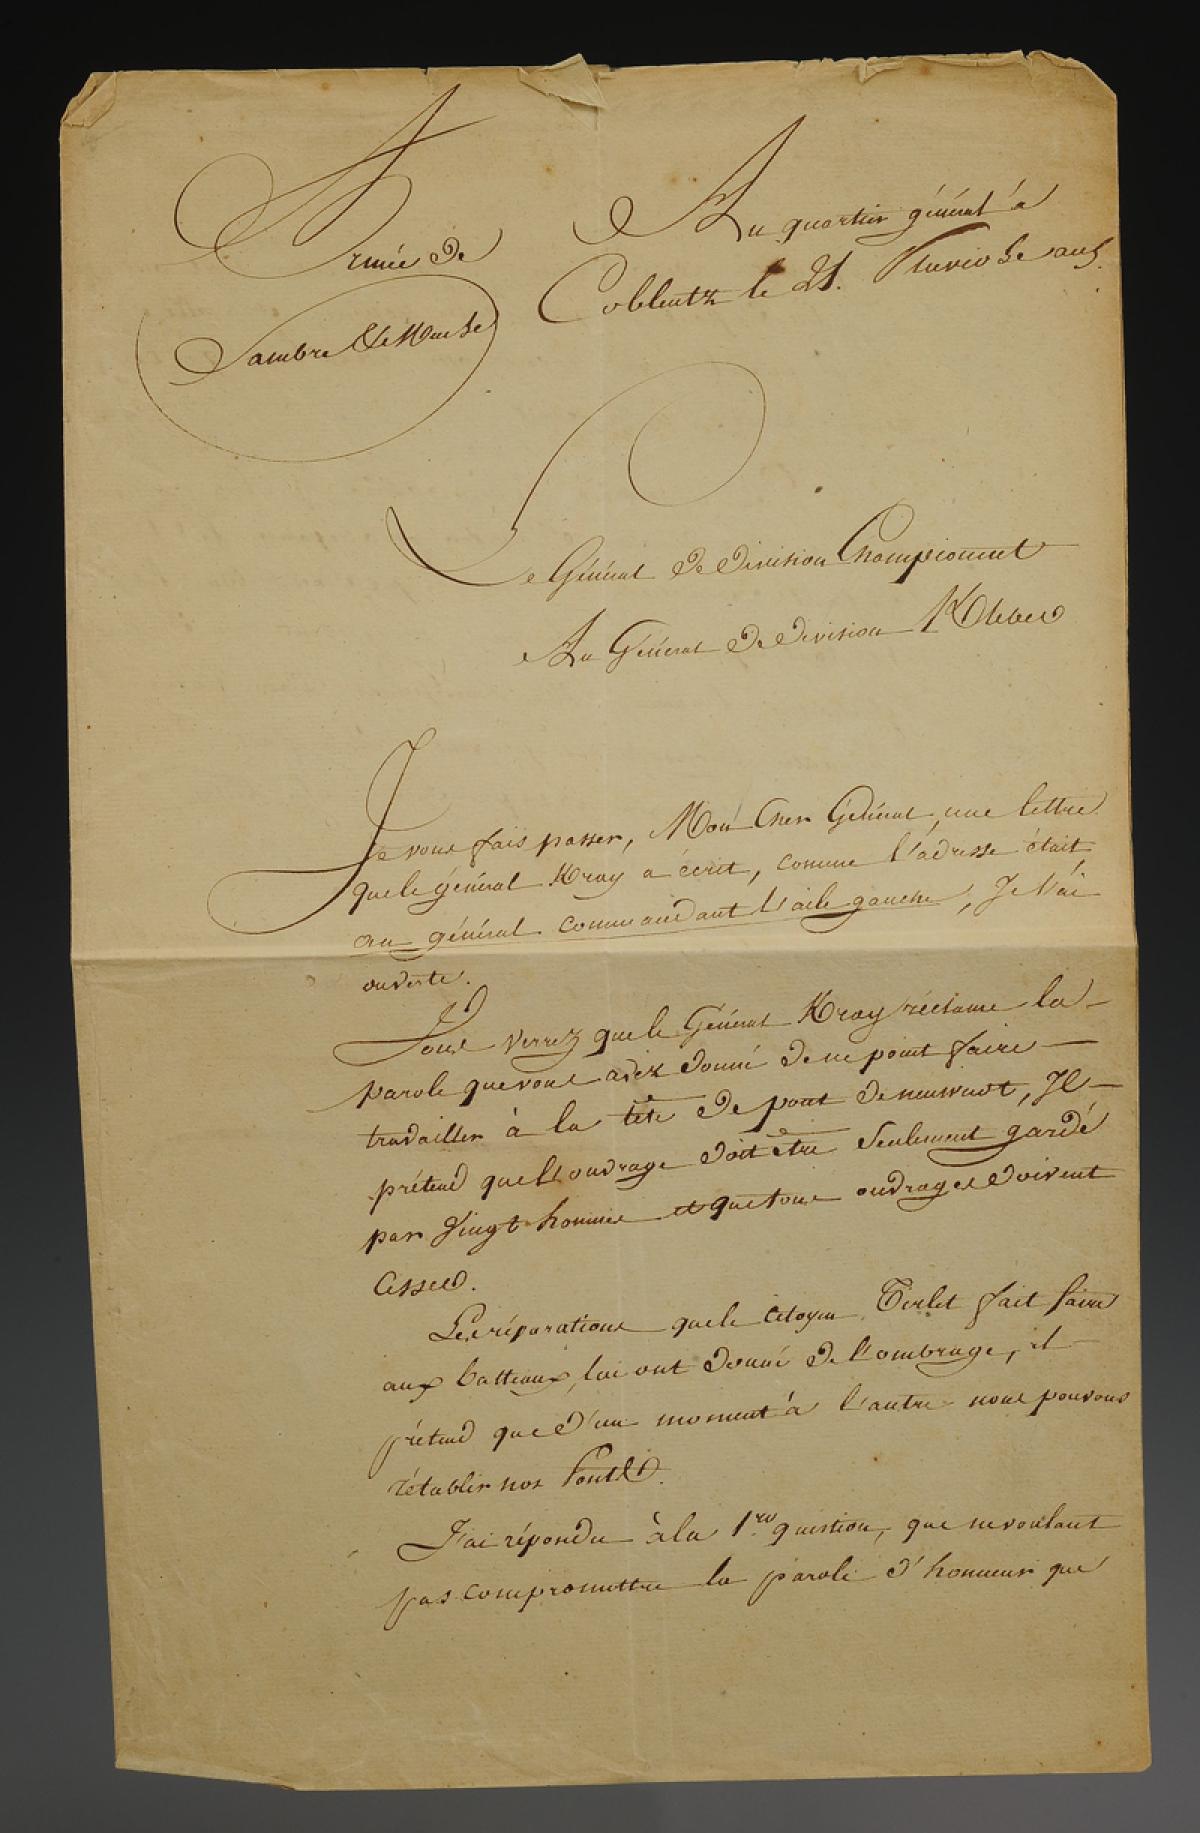 Armée de
Sambre & Meuse
Au quartier général à
Coblentz le 21. Pluviose an 5.
Le Général de division Championnet
Au Général de division Kleber
Je vous fais passer, Mon Cher Général, une lettre
que le général Kray a écrit, comme l'adresse était
au général commandant l'aile gauche, Je l'ai
ouverte.
Vous verrez que le Général Kray réclame la
parole que vous avez donné de ne point faire
travailler à la tête de pont de neuwied, Il
prétend que l'ouvrage doit être seulement gardé
par vingt hommes et que tous ouvrages doivent
cesser.
Les réparations que le citoyen Tirlet fait faire
aux batteaux, lui ont donné de l'ombrage, il
prétend que d'un moment à l'autre nous pouvons
rétablir nos Ponts.
J'ai répondu à la 1.re question, que ne voulant
pas compromettre la parole d'honneur que